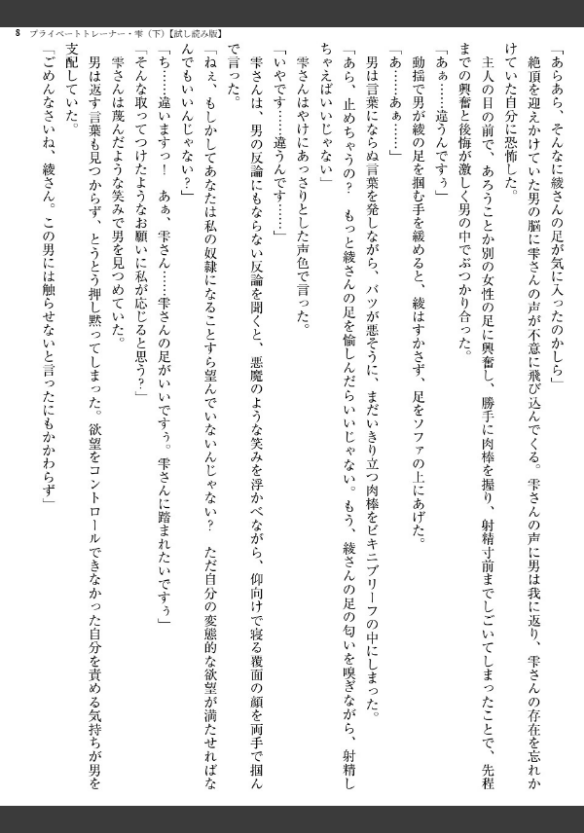 8 プライベートトレーナー・雫（下）【試し読み版】
「あらあら、そんなに綾さんの足が気に入ったのかしら」
　絶頂を迎えかけていた男の脳に雫さんの声が不意に飛び込んでくる。雫さんの声に男は我に返り、雫さんの存在を忘れか
けていた自分に恐怖した。
　主人の目の前で、あろうことか別の女性の足に興奮し、勝手に肉棒を握り、射精寸前までしごいてしまったことで、先程
までの興奮と後悔が激しく男の中でぶつかり合った。
「あぁ……違うんですぅ」
　動揺で男が綾の足を掴む手を緩めると、綾はすかさず、足をソファの上にあげた。
「あ……あぁ……」
　男は言葉にならぬ言葉を発しながら、バツが悪そうに、まだいきり立つ肉棒をビキニブリーフの中にしまった。
「あら、止めちゃうの？　もっと綾さんの足を愉しんだらいいじゃない。もう、綾さんの足の匂いを嗅ぎながら、射精し
ちゃえばいいじゃない」
　雫さんはやけにあっさりとした声色で言った。
「いやです……違うんです……」
　雫さんは、男の反論にもならない反論を聞くと、悪魔のような笑みを浮かべながら、仰向けで寝る覆面の顔を両手で掴ん
で言った。
「ねぇ、もしかしてあなたは私の奴隷になることすら望んでいないんじゃない？　ただ自分の変態的な欲望が満たせればな
んでもいいんじゃない？」
「ち……違いますっ！　あぁ、雫さん……雫さんの足がいいですぅ。雫さんに踏まれたいですぅ」
「そんな取ってつけたようなお願いに私が応じると思う？」
　雫さんは蔑んだような笑みで男を見つめていた。
　男は返す言葉も見つからず、とうとう押し黙ってしまった。欲望をコントロールできなかった自分を責める気持ちが男を
支配していた。
「ごめんなさいね、綾さん。この男には触らせないと言ったにもかかわらず」